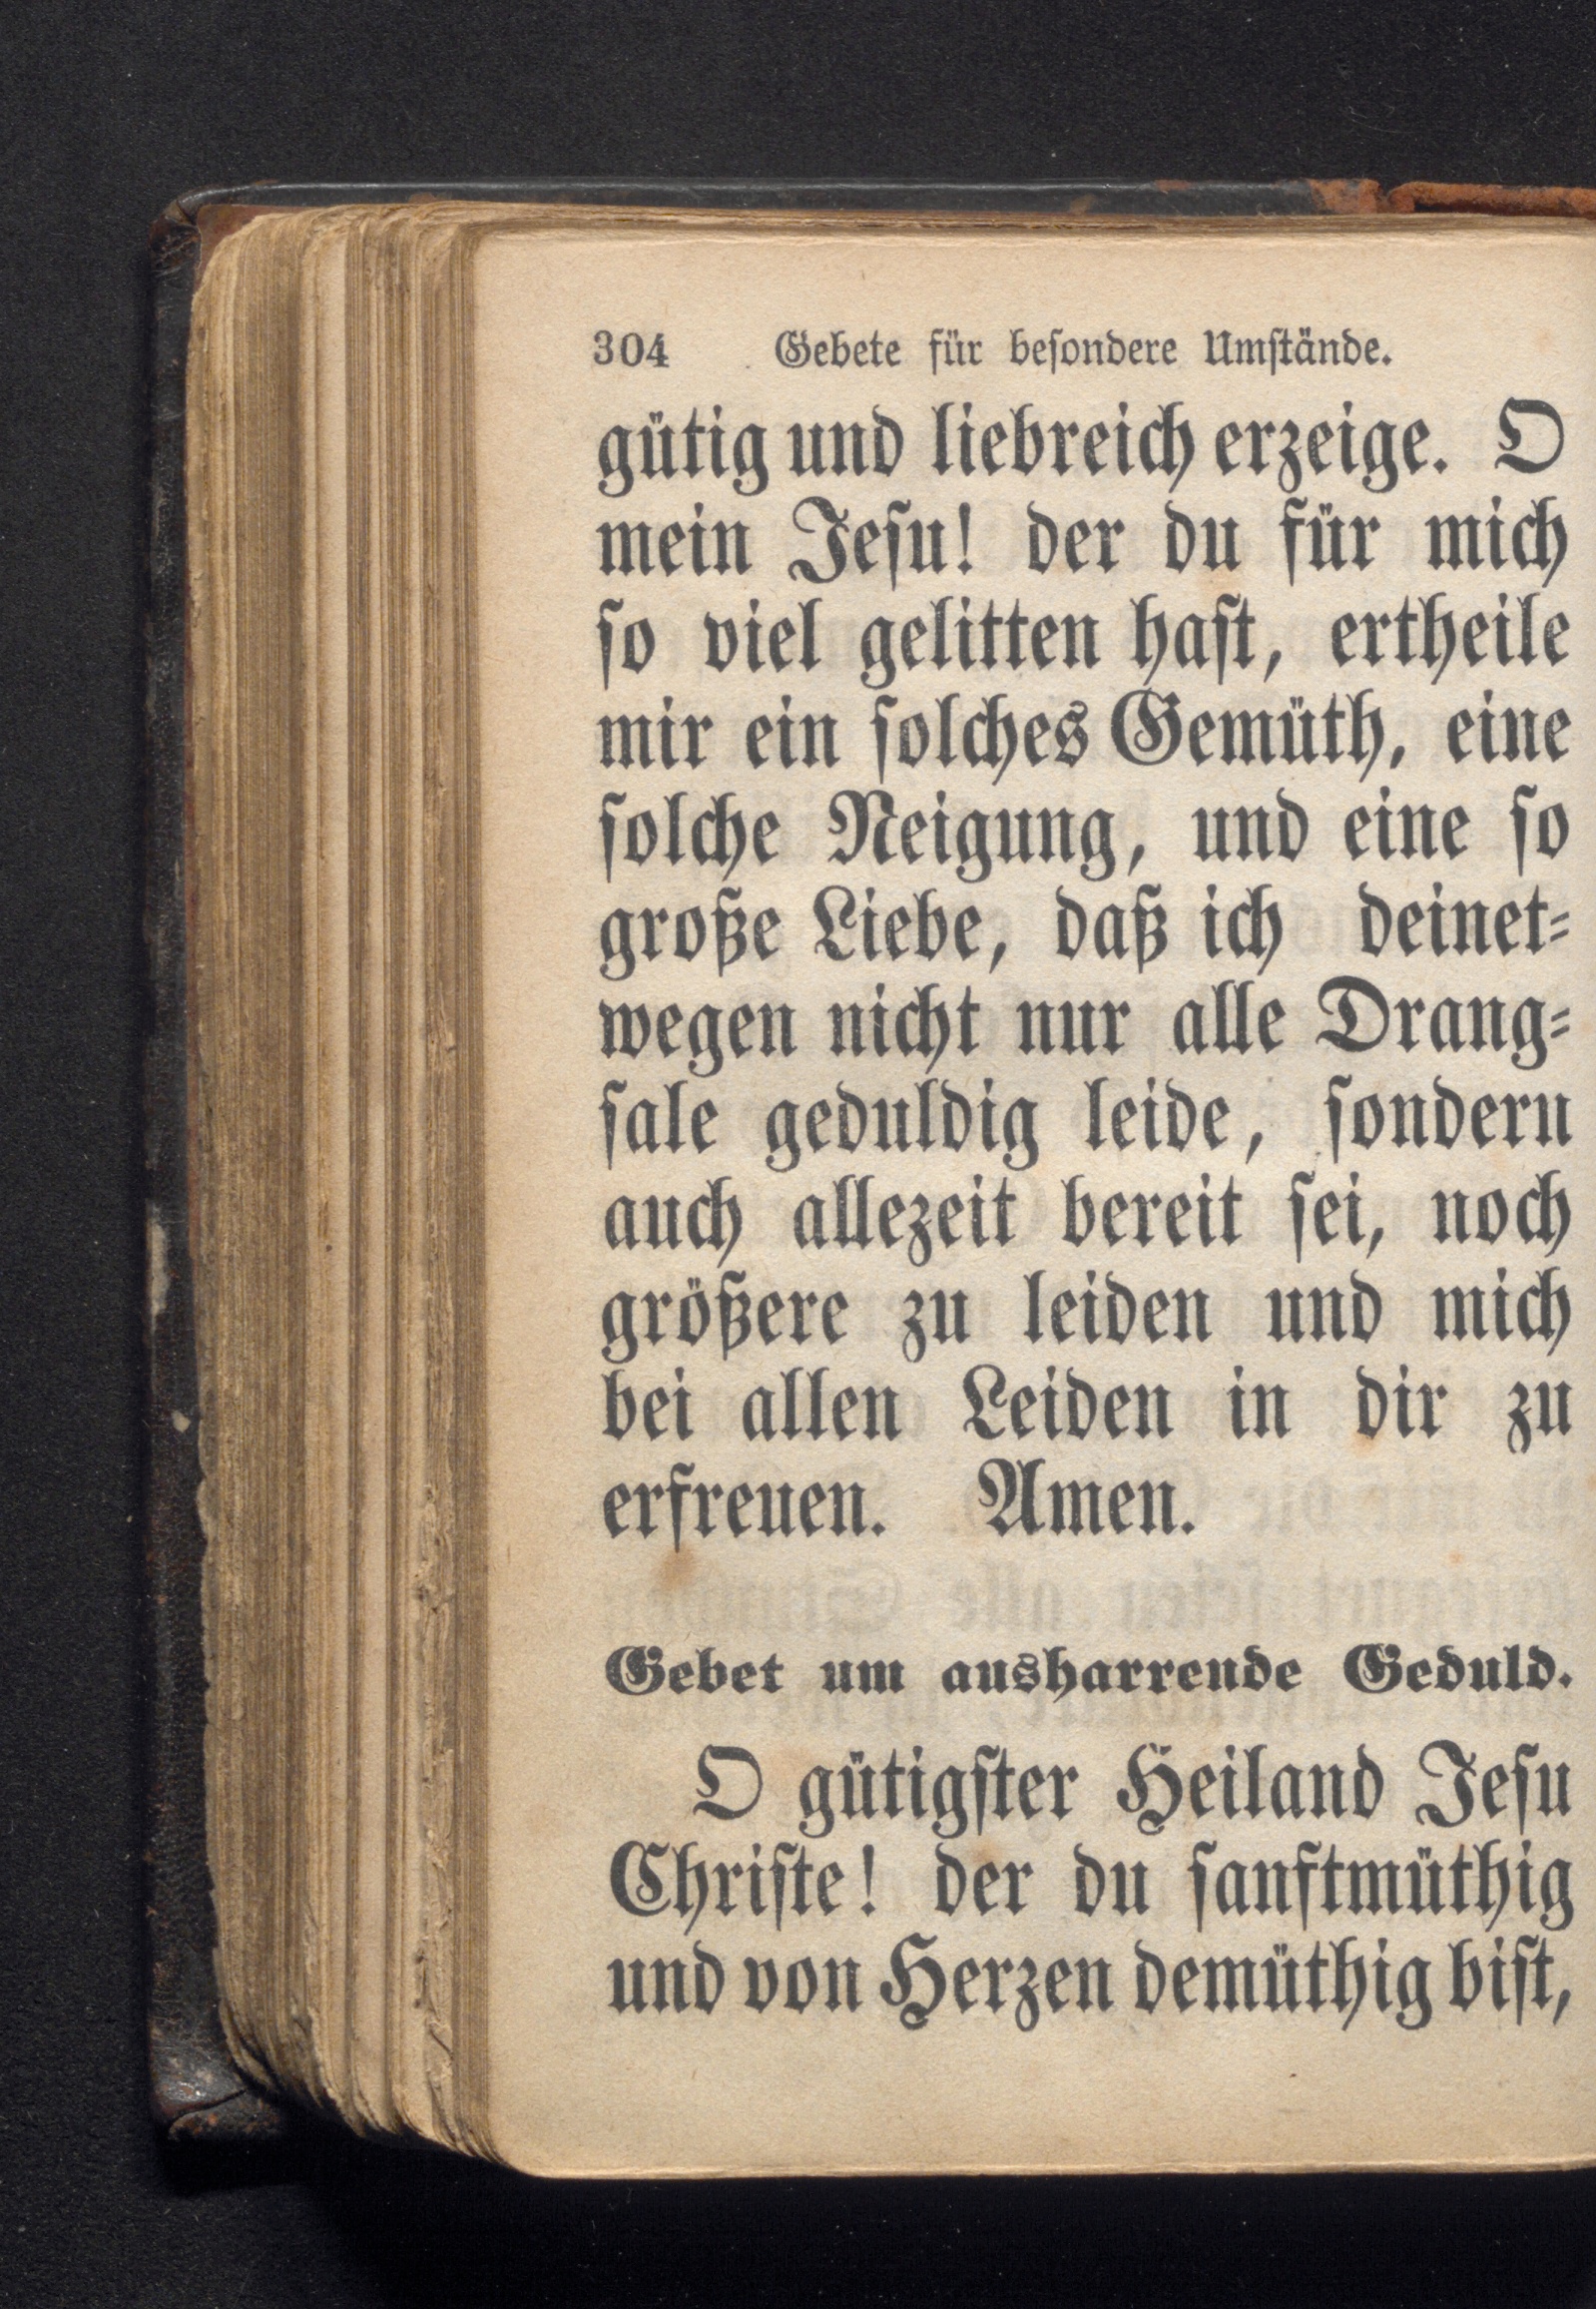 304 Gebete für beſondere Umſtände.
gütig und liebreich erzeige. O
mein Jeſu! der du für mich
ſo viel gelitten haſt, ertheile
mir ein ſolches Gemüth, eine
ſolche Neigung, und eine ſo
große Liebe, daß ich deinet-
wegen nicht nur alle Drang-
ſale geduldig leide, ſondern
auch allezeit bereit ſei, noch
größere zu leiden und mich
bei allen Leiden in dir zu
erfreuen. Amen.
Gebet um ausharrende Geduld.
O gütigſter Heiland Jeſu
Chriſte! der du ſanftmüthig
und von Herzen demüthig biſt,